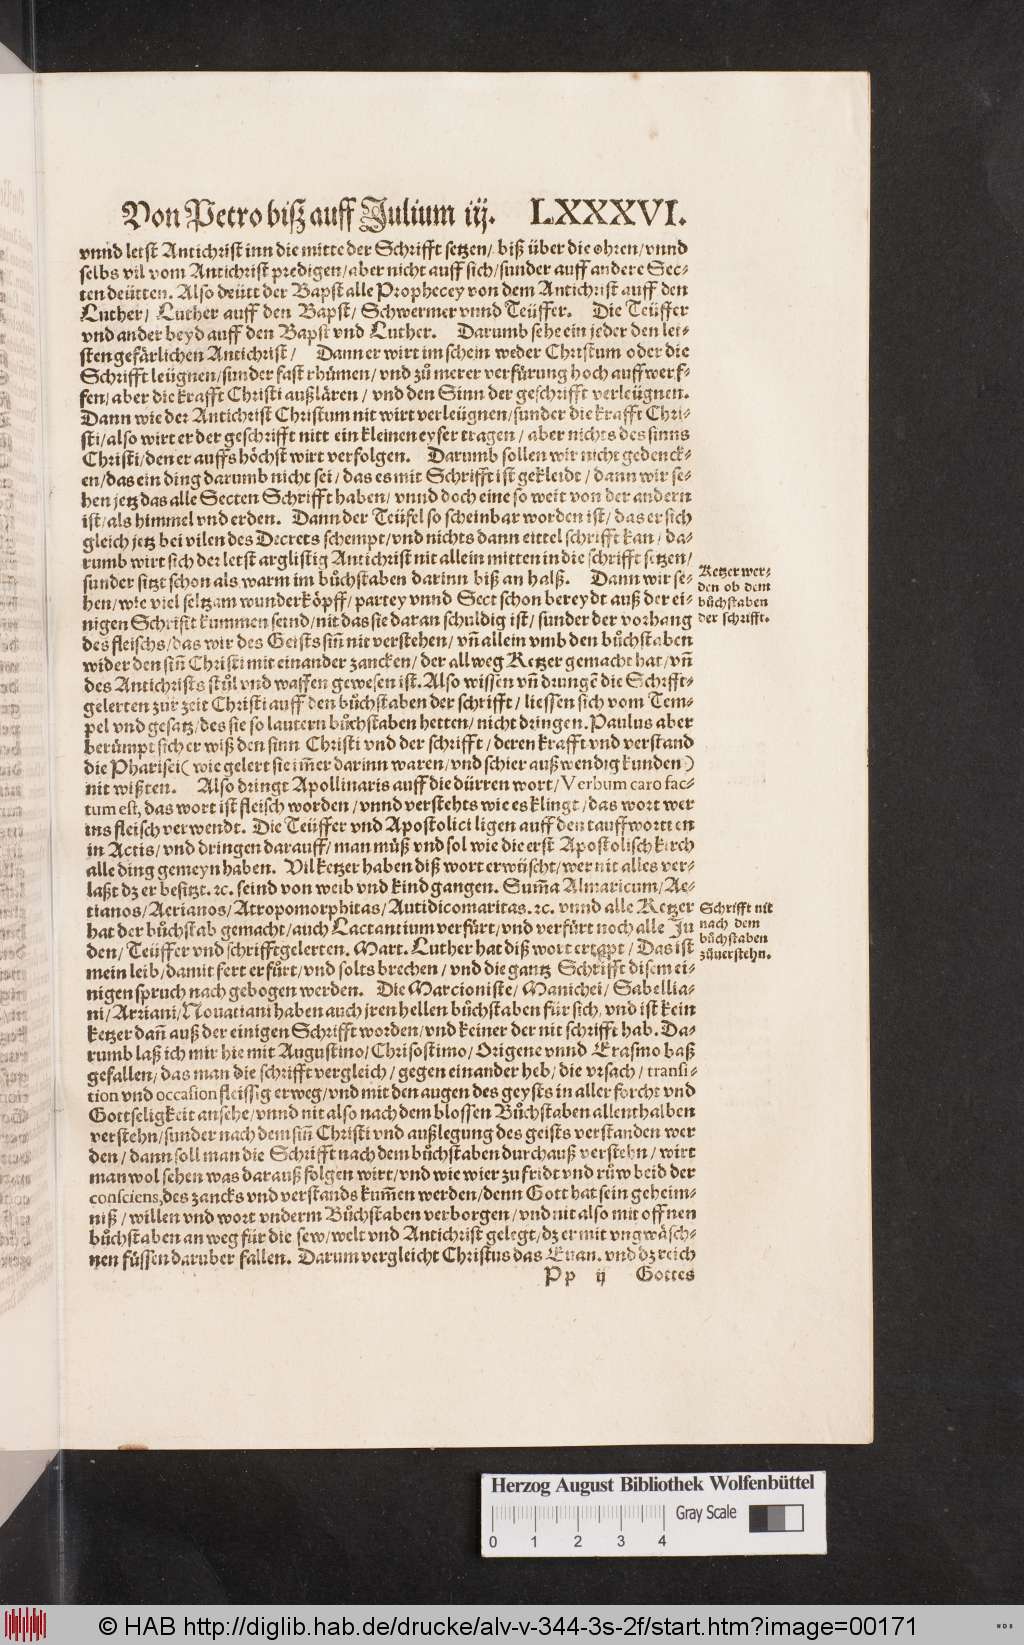 Von Petro biß auff Julium iij. LXXXVI.
vnnd letst Antichrist inn die mitte der Schrifft setzen/ biß über die ohren/vnnd
selbs vil vom Antichrist predigen/aber nicht auff sich/sunder auff andere Sec-
ten deütten. Also deütt der Bapst alle Prophecey von dem Antichrist auff den
Luther/ Luther auff den Bapst/ Schwermer vnnd Teüffer. Die Teüffer
vnd ander beyd auff den Bapst vnd Luther. Darumb sehe ein jeder den lei-
sten gefärlichen Antichrist/ Dann er wirt im schein weder Christum oder die
Schrifft leügnen/sunder fast rhümen/vnd zů merer verfürung hoch auffwerf-
fen/aber die krafft Christi außlären/ vnd den Sinn der geschrifft verleügnen.
Dann wie der Antichrist Christum nit wirt verleügnen/sunder die krafft Chri-
sti/also wirt er der geschrifft nitt ein kleinen eyser tragen/ aber nichts des sinns
Christi/den er auffs höchst wirt verfolgen. Darumb sollen wir nicht gedenck-
en/das ein ding darumb nicht sei/das es mit Schrifft ist gekleidt/dann wir se-
hen jetz das alle Secten Schrifft haben/ vnnd doch eine so weit von der andern
ist/als himmel vnd erden. Dann der Teüfel so scheinbar worden ist/das er sich
gleich jetz bei vilen des Decrets schempt/vnd nichts dann eittel schrifft kan/da-
rumb wirt sich der letst arglistig Antichrist nit allein mitten in die schrifft setzen/
sunder sitzt schon als warm im bůchstaben darinn biß an halß. Dann wir se-
hen/wie viel seltzam wunderköpff/partey vnnd Sect schon bereydt auß der ei-
nigen Schrifft kummen seind/nit das sie daran schuldig ist/sunder der vorhang
des fleischs/das wir des Geists sinn̄ nit verstehen/vn̄ allein vmb den bůchstaben
wider den sin̄ Christi mit einander zancken/der allweg Ketzer gemacht hat/vn̄
des Antichrists stůl vnd waffen gewesen ist. Also wissen vn̄ drungē die Schrifft-
gelerten zur zeit Christi auff den bůchstaben der schrifft/ liessen sich vom Tem-
pel vnd gesatz/des sie so lautern bůchstaben hetten/nicht dringen. Paulus aber
berümpt sich er wiß den sinn Christi vnd der schrifft/deren krafft vnd verstand
die Pharisei (wie gelert sie im̄er darinn waren/vnd schier außwendig kunden)
nit wißten. Also dringt Apollinaris auff die dürren wort/Verbum caro fac-
tum est, das wort ist fleisch worden/vnnd verstehts wie es klingt/das wort wer
ins fleisch verwendt. Die Teüffer vnd Apostolici ligen auff den tauffwortten
in Actis/vnd dringen darauff/man müß vnd sol wie die erst Apostolisch kirch
alle ding gemeyn haben. Vil ketzer haben diß wort erwüscht/wer nit alles ver-
laßt dz er besitzt. ⁊c. seind von weib vnd kind gangen. Sum̄a Almaricum/Ae-
tianos/Aerianos/Atropomorphitas/Autidicomaritas. ⁊c. vnnd alle Ketzer
hat der bůchstab gemacht/auch Lactantium verfürt/vnd verfürt noch alle Ju
den/Teüffer vnd schrifftgelerten. Mart. Luther hat diß wort ertapt/Das ist
mein leib/damit fert er fürt/vnd solts brechen/vnd die gantz Schrifft disem ei-
nigen spruch nach gebogen werden. Die Marcioniste/Manichei/Sabellia-
ni/Arriani/Nouatiani haben auch jren hellen bůchstaben für sich/vnd ist kein
ketzer dan̄ auß der einigen Schrifft worden/vnd keiner der nit schrifft hab. Da-
rumb laß ich mir hie mit Augustino/Chrisostimo/Origene vnnd Erasmo baß
gefallen/das man die schrifft vergleich/gegen einander heb/die vrsach/transi-
tion vnd occasion fleissig erweg/vnd mit den augen des geysts in aller forcht vnd
Gottseligkeit ansehe/vnnd nit also nach dem blossen Bůchstaben allenthalben
verstehn/sunder nach dem sin̄ Christi vnd außlegung des geists verstanden wer
den/dann soll man die Schrifft nach dem bůchstaben durchauß verstehn/wirt
man wol sehen was darauß folgen wirt/vnd wie wier zu fridt vnd růw beid der
consciens,des zancks vnd verstands kum̄en werden/denn Gott hat sein geheim-
niß/willen vnd wort vnderm Bůchstaben verborgen/vnd nit also mit offnen
bůchstaben an weg für die sew/welt vnd Antichrist gelegt/dz er mit vngwäsch-
nen füssen darüber fallen. Darum vergleicht Christus das Euan. vnd dz reich
Pp ij Gottes
Ketzer wer-
den ob dem
bůchstaben
der schrifft.
Schrifft nit
nach dem
bůchstaben
züuerstehn.
Herzog August Bibliothek Wolfenbüttel
Gray Scale
0 1 2 3 4
© HAB http://diglib.hab.de/drucke/alv-v-344-3s-2f/start.htm?image=00171